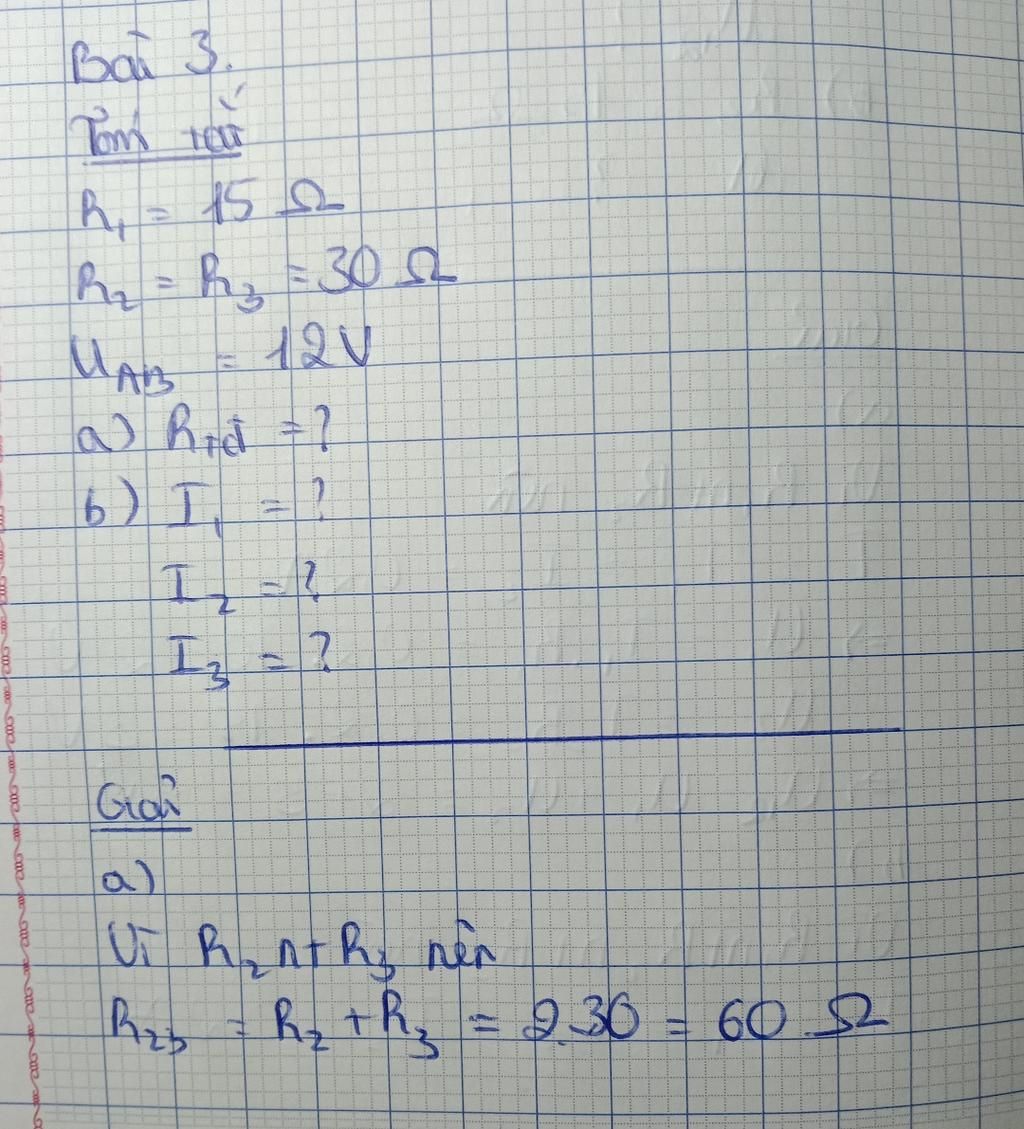 Bài 3.
Tóm tắt
R₁ = 15 Ω
R₂ = R₃ = 30 Ω
U_AB = 12V
a) R_tđ = ?
b) I₁ = ?
I₂ = ?
I₃ = ?
Giải
a)
Vì R₂ nt R₃ nên
R₂₃ = R₂ + R₃ = 2.30 = 60 Ω